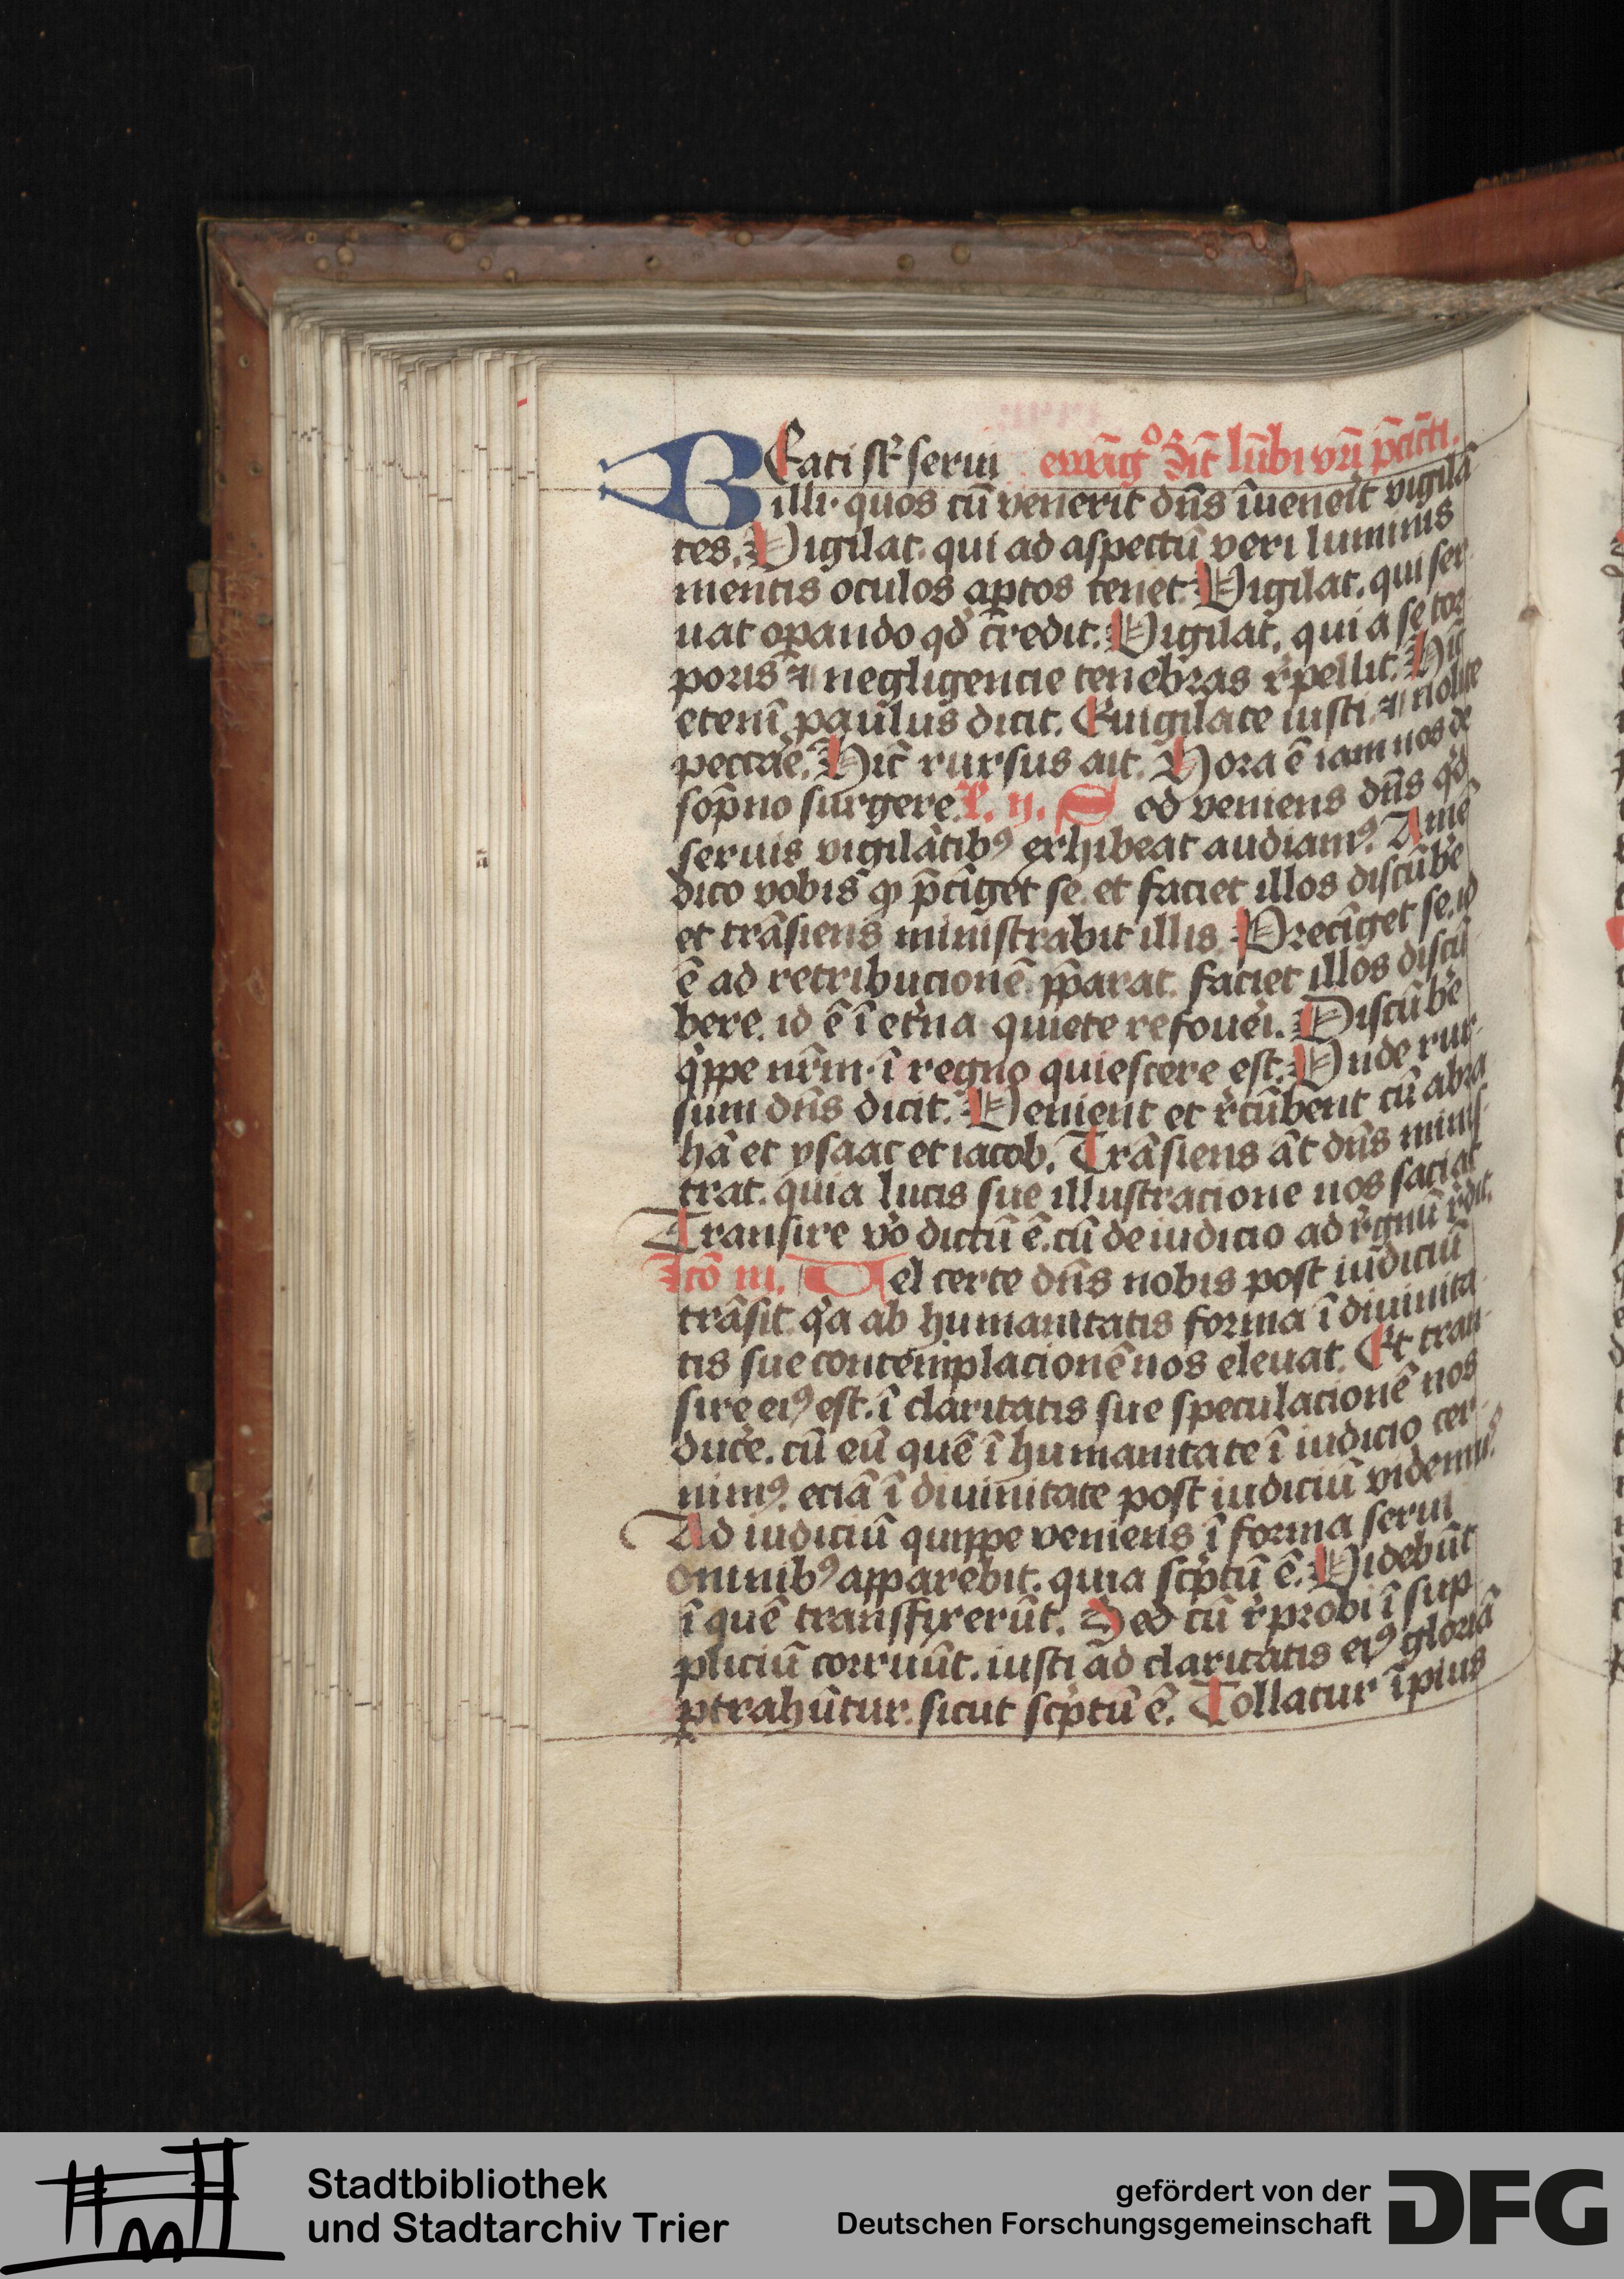 BEati sūt serui ewāgº dic̄ lūbi vrī p̄cīcti.
illi· quos cū venerit dn̄s īuenerīt vigilā
tes. Vigilat. qui ad aspectū veri luminis
mentis oculos aptos tenet. Vigilat. qui ser
uat oꝑando qd̕ credit. Vigilat. qui a se tor
poris ⁊ negligencie tenebras r̕pellit. Hīc
etenī paulus dicit. Euigilate iusti. ⁊ nolite
peccar̄e. Hīc rursus ait. Hora ē iam nos de
sop̄no surgere. L. ij. Sed veniens dn̄s qͥd
seruis vigilātibꝰ exhibeat audiamꝰ. Amē
dico vobis ꝙ p̄cīget se. et faciet illos discūbe̕
et trāsiens ministrabit illis. Precīget se. id
ē ad retribucionē p̄parat. faciet illos discū
bere. id ē ī et̕na quiete refoueri. Discūbe̕
qͥppe nr̄m· ī regno quiescere est. Vnde rur
sum dn̄s dicit. Venient et r̕cūbent cū abra
hā et ysaac et iacob. Trāsiens āt dn̄s minis
trat. quia lucis sue illustracione nos saciat
Transire v̕o dictū ē. cū de iudicio ad r̕gnū r̕dit.
Lcō iij. Vel certe dn̄s nobis post iudiciū
trāsit. qͥa ab humanitatis forma ī diuinita
tis sue contemplacionē nos eleuat. Et tran
sire eiꝰ est. ī claritatis sue speculacionē nos
duce̕. cū eū quē ī humanitate ī iudicio cer
nimꝰ. eciā ī diuinitate post iudiciū videmuꝰ
Ad iudiciū quippe veniens ī forma serui
omnibꝰ apparebit. quia scͥptū ē. Videbūt
ī quē transfixerūt. Sed cū r̕probi ī sup
pliciū corruūt. iusti ad claritatis eiꝰ gloriā
ꝑtrahūtur. sicut scͥptū ē. Tollatur īpius
Stadtbibliothek
und Stadtarchiv Trier
gefördert von der
Deutschen Forschungsgemeinschaft
DFG